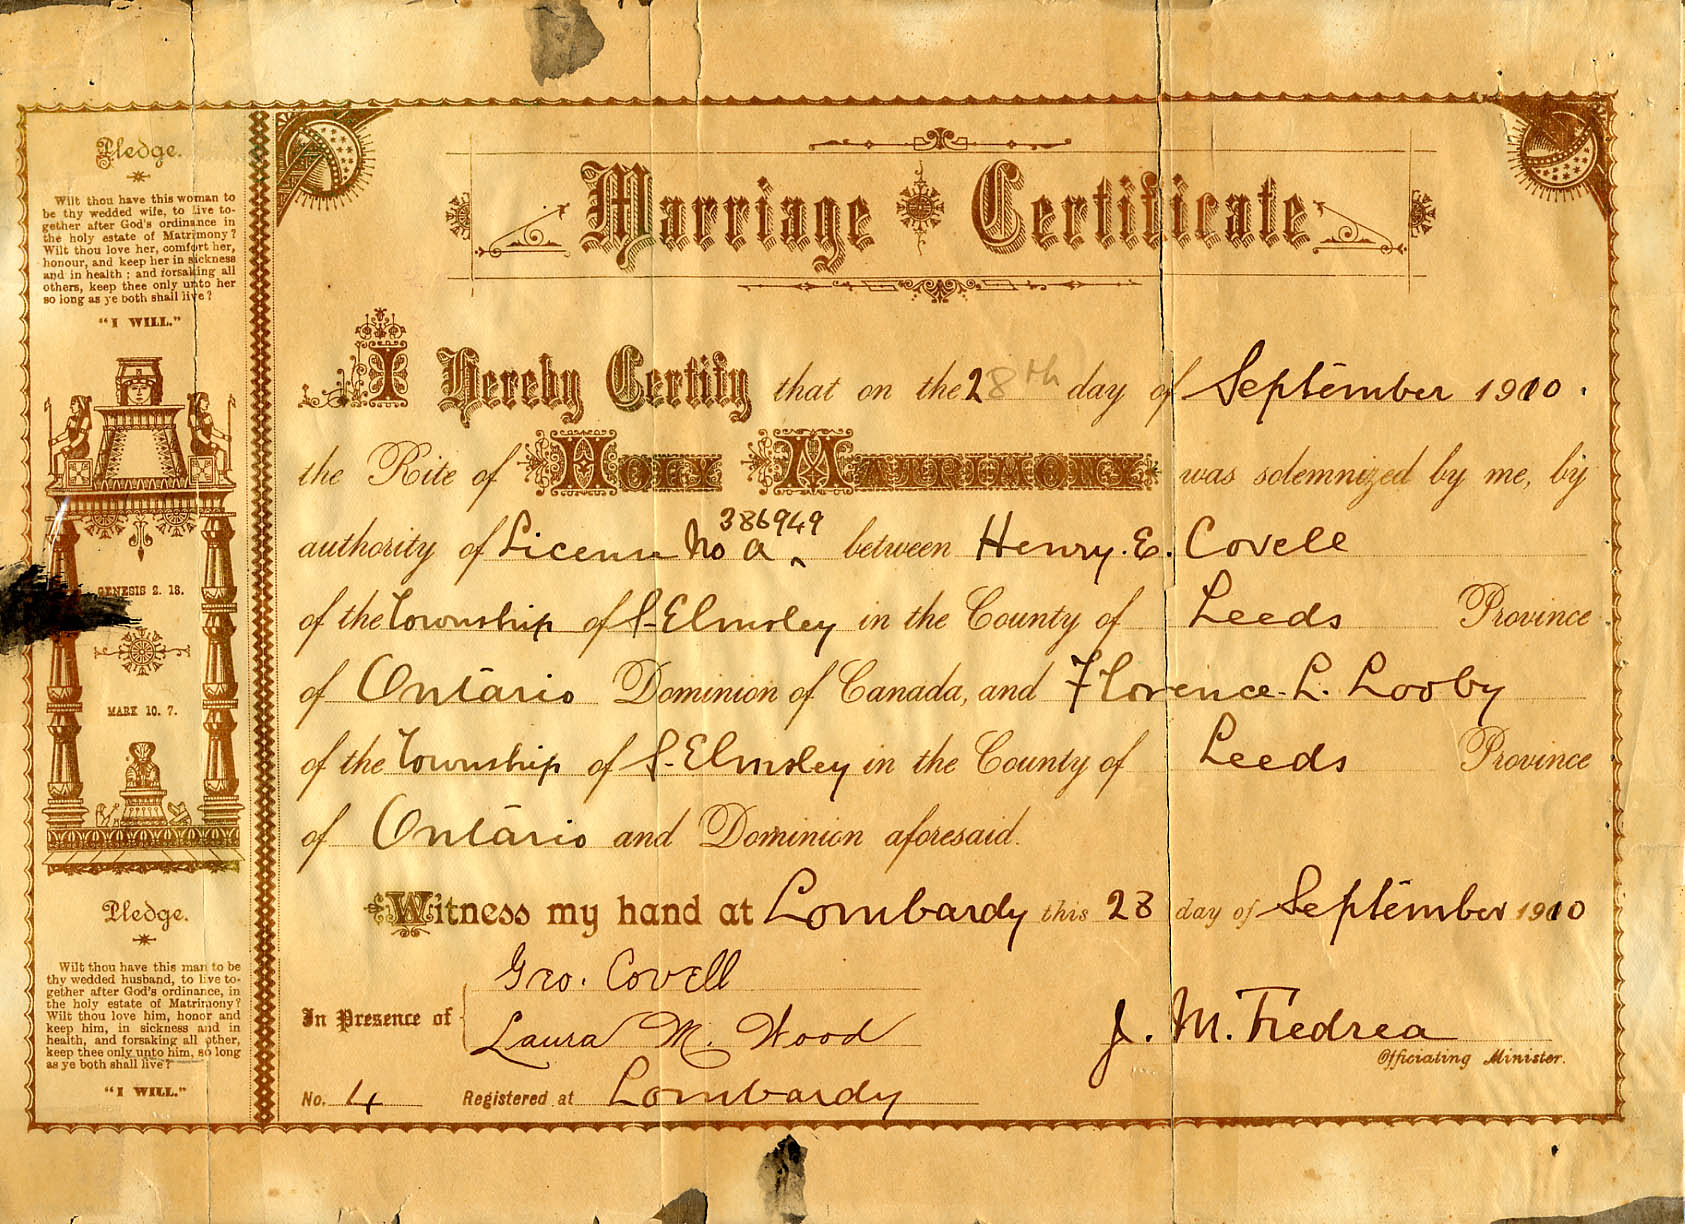 Pledge.
Wilt thou have this woman to
be thy wedded wife, to live to-
gether after God's ordinance in
the holy estate of Matrimony?
Wilt thou love her, comfort her,
honour, and keep her in sickness
and in health; and forsaking all
others, keep thee only unto her
so long as ye both shall live?
"I WILL."
GENESIS 2. 18.
MARK 10. 7.
Pledge.
Wilt thou have this man to be
thy wedded husband, to live to-
gether after God's ordinance, in
the holy estate of Matrimony?
Wilt thou love him, honor and
keep him, in sickness and in
health, and forsaking all other,
keep thee only unto him, so long
as ye both shall live?
"I WILL."
Marriage Certificate
I Hereby Certify that on the 28th day of September 1910.
the Rite of HOLY MATRIMONY was solemnized by me, by
386949
authority of License No a ‸ between Henry. E. Covell
of the Township of S-Elmsley in the County of Leeds Province
of Ontario Dominion of Canada, and Florence. L. Looby
of the Township of S-Elmsley in the County of Leeds Province
of Ontario and Dominion aforesaid.
Witness my hand at Lombardy this 28 day of September 1910
Geo. Covell
In Presence of
Laura M. Wood
J. M. Tredrea
Officiating Minister.
No. 4 Registered at Lombardy